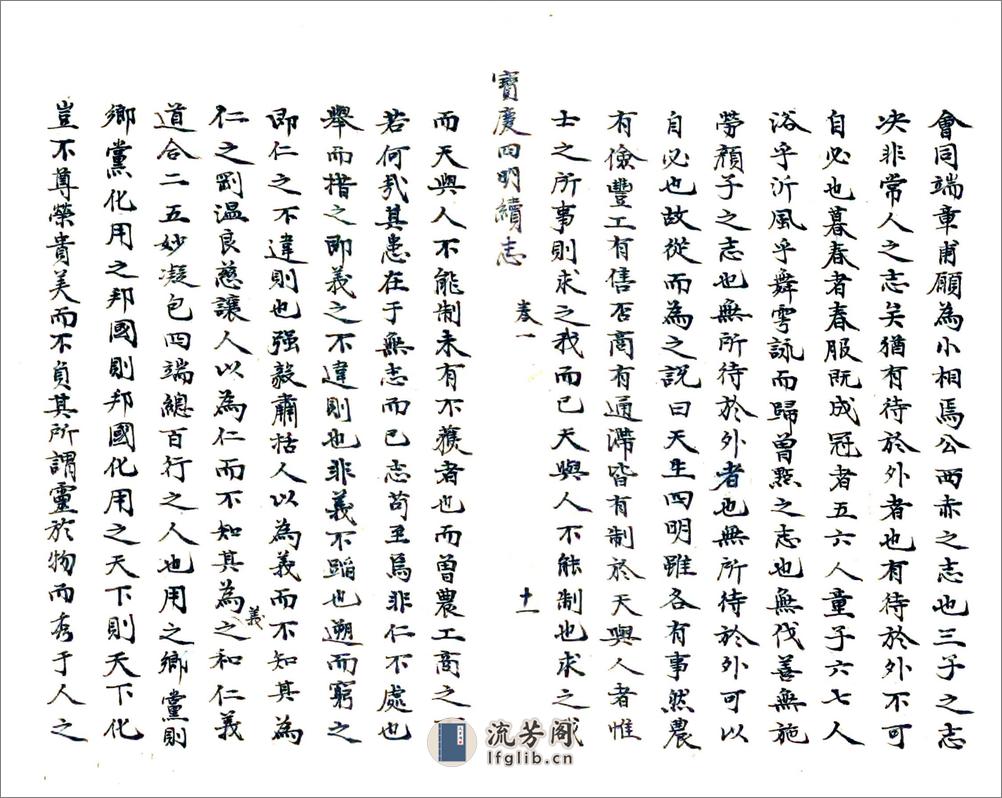 會同端章甫願為小相焉公西赤之志也三子之志
决非常人之志矣猶有待於外者也有待於外不可
自必也暮春者春服既成冠者五六人童子六七人
浴乎沂風乎舞雩詠而歸曾點之志也無伐善無施
勞顏子之志也無所待於外者也無所待於外可以
自必也故從而為之説曰天生四明雖各有事然農
有儉豐工有售否商有通滯皆有制於天與人者惟
士之所事則求之我而已天與人不能制也求之我
寶慶四明續志 卷一 十一
而天與人不能制未有不獲者也而曾農工商之
若何哉其患在于無志而已志苟至焉非仁不處也
舉而措之即義之不違則也非義不蹈也遡而窮之
即仁之不違則也强毅肅括人以為義而不知其為
仁之剛温良慈讓人以為仁而不知其為之和仁義
義
道合二五妙凝包四端總百行之人也用之鄉黨則
鄉黨化用之邦國則邦國化用之天下則天下化
豈不尊榮貴美而不負其所謂靈於物而秀于人之
流芳阁
lfglib.cn